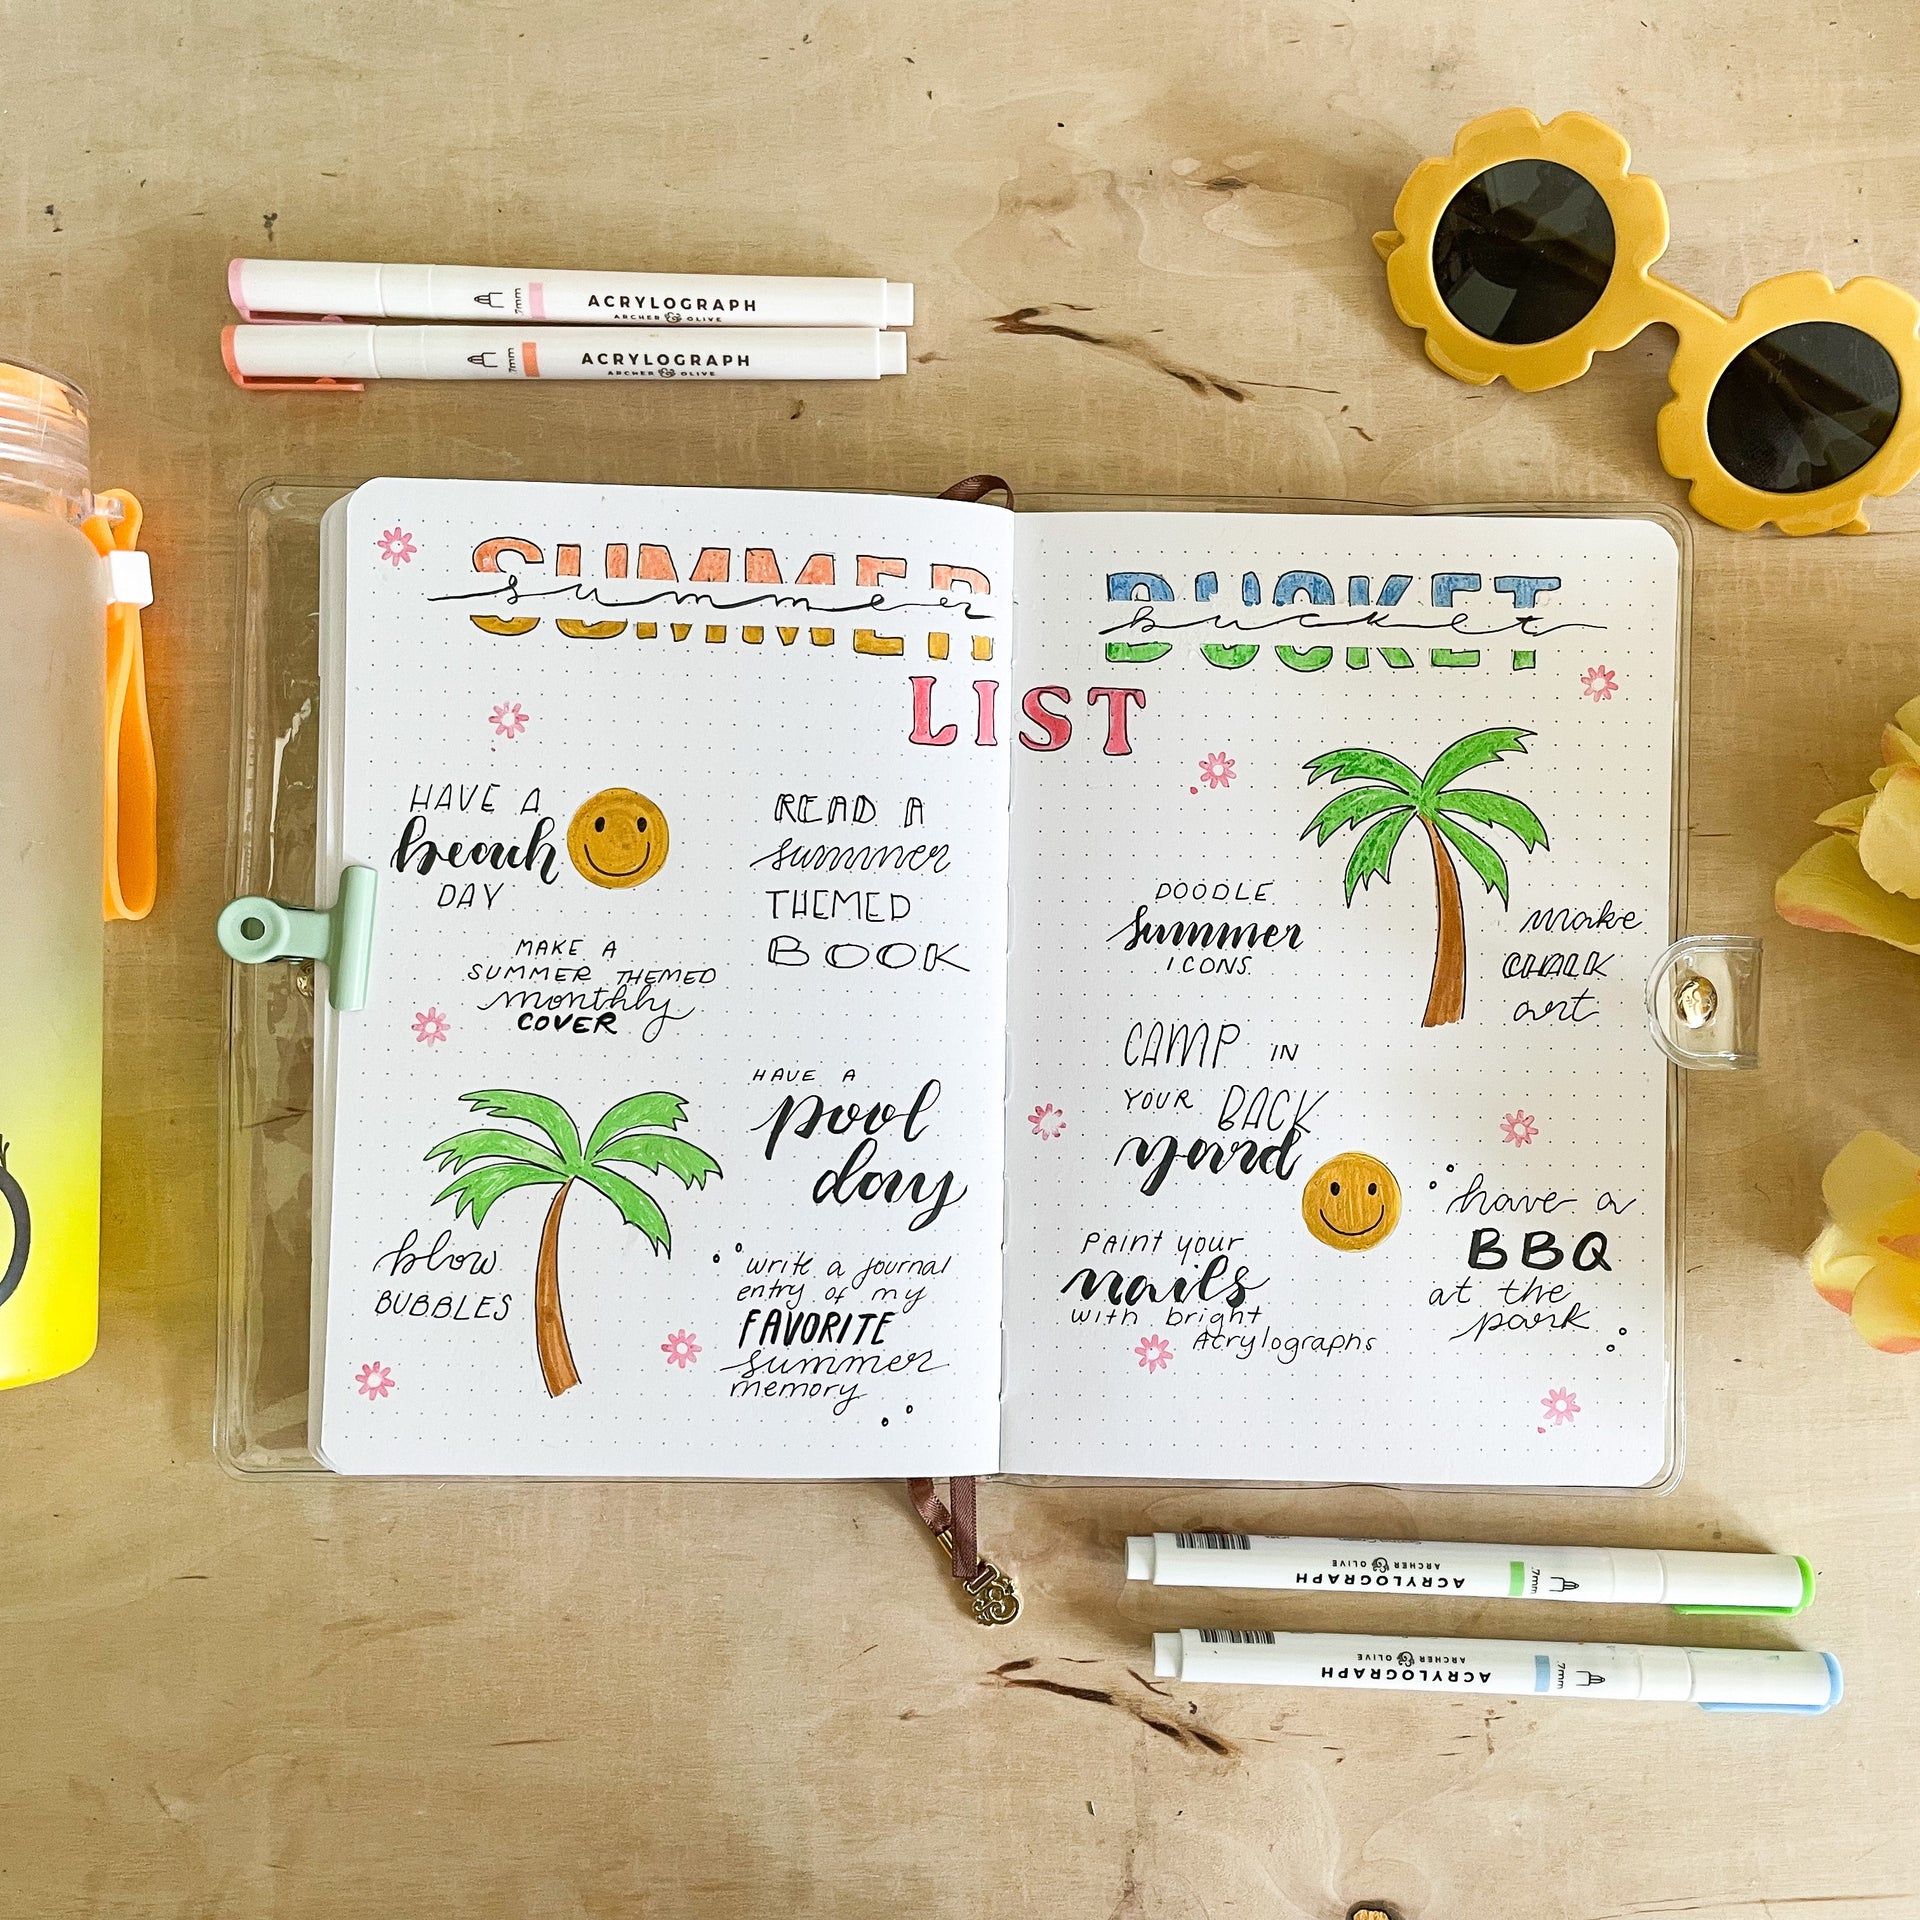 ACRYLOGRAPH
ARCHER & OLIVE
.7mm
ACRYLOGRAPH
ARCHER & OLIVE
.7mm
SUMMER
summer
BUCKET
bucket
LIST
HAVE A
beach
DAY
MAKE A
SUMMER THEMED
monthly
COVER
READ A
summer
THEMED
BOOK
HAVE A
pool
day
blow
BUBBLES
write a journal
entry of my
FAVORITE
summer
memory
DOODLE
summer
ICONS
make
CHALK
art
CAMP IN
YOUR BACK
yard
PAINT your
nails
with bright
Acrylographs
have a
BBQ
at the
park
ACRYLOGRAPH
ARCHER & OLIVE
.7mm
ACRYLOGRAPH
ARCHER & OLIVE
.7mm